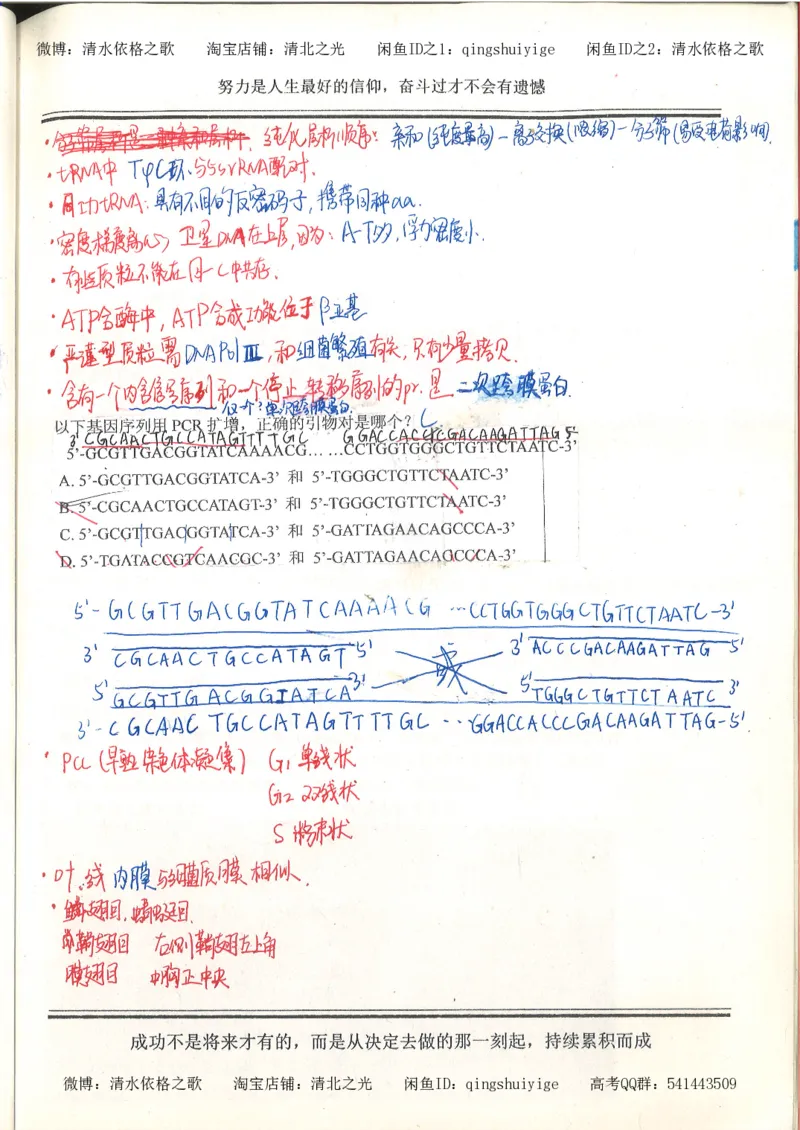 微博：清水依格之歌 淘宝店铺：清北之光 闲鱼ID之1：qingshuiyige 闲鱼ID之2：清水依格之歌
努力是人生最好的信仰，奋斗过才不会有遗憾
纯化层析顺序：亲和(纯度最高)—离子交换(浓缩)—分子筛(易受电荷影响).
·tRNA中 TψC环与5srRNA配对.
·同功tRNA：具有不同的反密码子，携带同种aa.
·密度梯度离心 卫星DNA在上层，因为：A-T多，浮力密度小.
·有些质粒不能在同一C中共存.
·ATP合酶中，ATP合成功能位于β亚基
·严谨型质粒需DNA Pol Ⅲ，和细菌繁殖有关，只有少量拷贝.
·含有一个内含信号序列和一个停止转移序列的pr.是 二次跨膜蛋白.
仅一个？单次跨膜蛋白.
以下基因序列用 PCR 扩增，正确的引物对是哪个？ C
3' CGCAACTGCCATAGTTTTGC GGACCACCCGACAAGATTAG 5'
5'-GCGTTGACGGTATCAAAACG……CCTGGTGGGCTGTTCTAATC-3'
A. 5'-GCGTTGACGGTATCA-3' 和 5'-TGGGCTGTTCTAATC-3'
B. 5'-CGCAACTGCCATAGT-3' 和 5'-TGGGCTGTTCTAATC-3'
C. 5'-GCGTTGACGGTATCA-3' 和 5'-GATTAGAACAGCCCA-3'
D. 5'-TGATACCGTCAACGC-3' 和 5'-GATTAGAACAGCCCA-3'
5'-GCGTTGACGGTATCAAAACG…CCTGGTGGGCTGTTCTAATC-3'
3' CGCAACTGCCATAGT 5' 或 3' ACCCGACAAGATTAG 5'
5' GCGTTGACGGTATCA 3' 5' TGGGCTGTTCTAATC 3'
3'-CGCAACTGCCATAGTTTTGC…GGACCACCCGACAAGATTAG-5'
·PCC (早熟染色体凝集) G1 单线状
G2 双线状
S 粉末状
·叶、线内膜与细菌质膜相似.
·鳞翅目，蜻蜓目
鞘翅目 左侧鞘翅左上角
膜翅目 中胸正中央
成功不是将来才有的，而是从决定去做的那一刻起，持续累积而成
微博：清水依格之歌 淘宝店铺：清北之光 闲鱼ID：qingshuiyige 高考QQ群：541443509